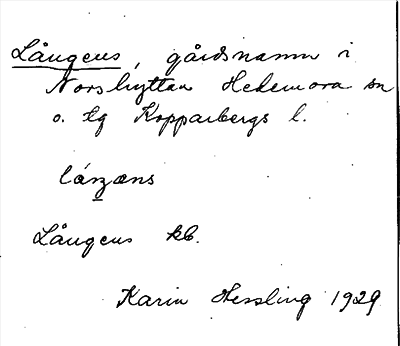 Långens, gårdsnamn i
Norshyttan Hedemora sn
o. tg Kopparbergs l.
Långens kb.
Karin Hessling 1929